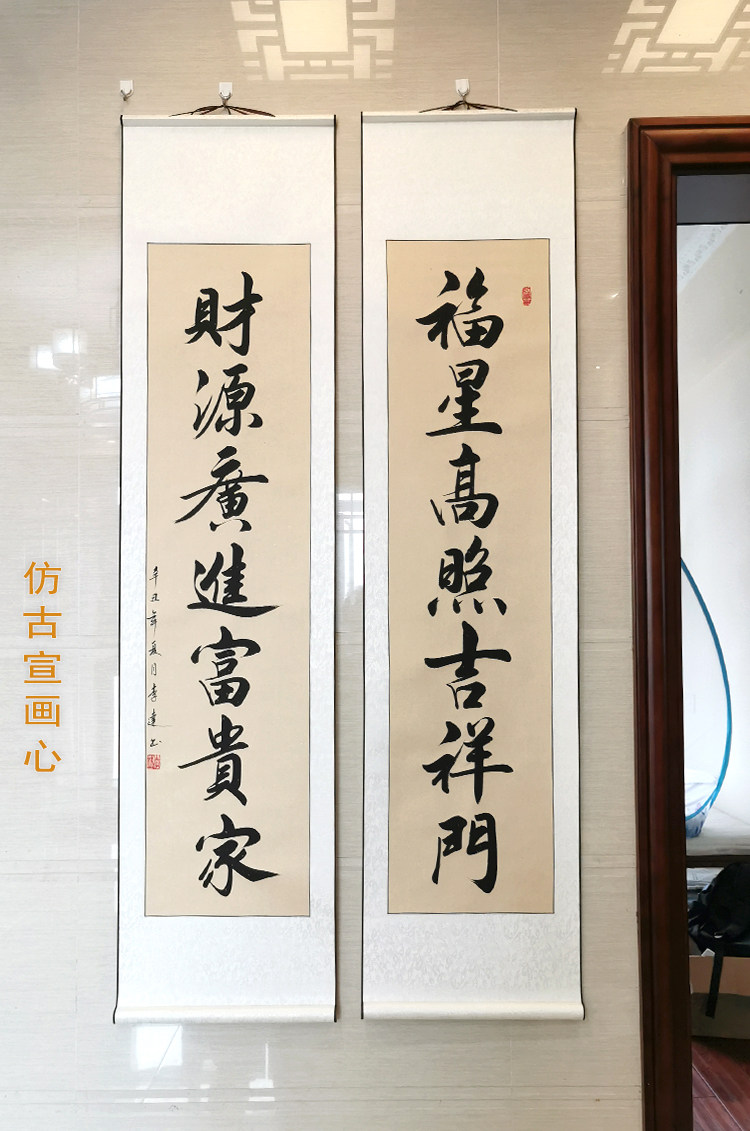 福星高照吉祥門
財源廣進富貴家
辛丑年夏月李達书
仿古宣画心